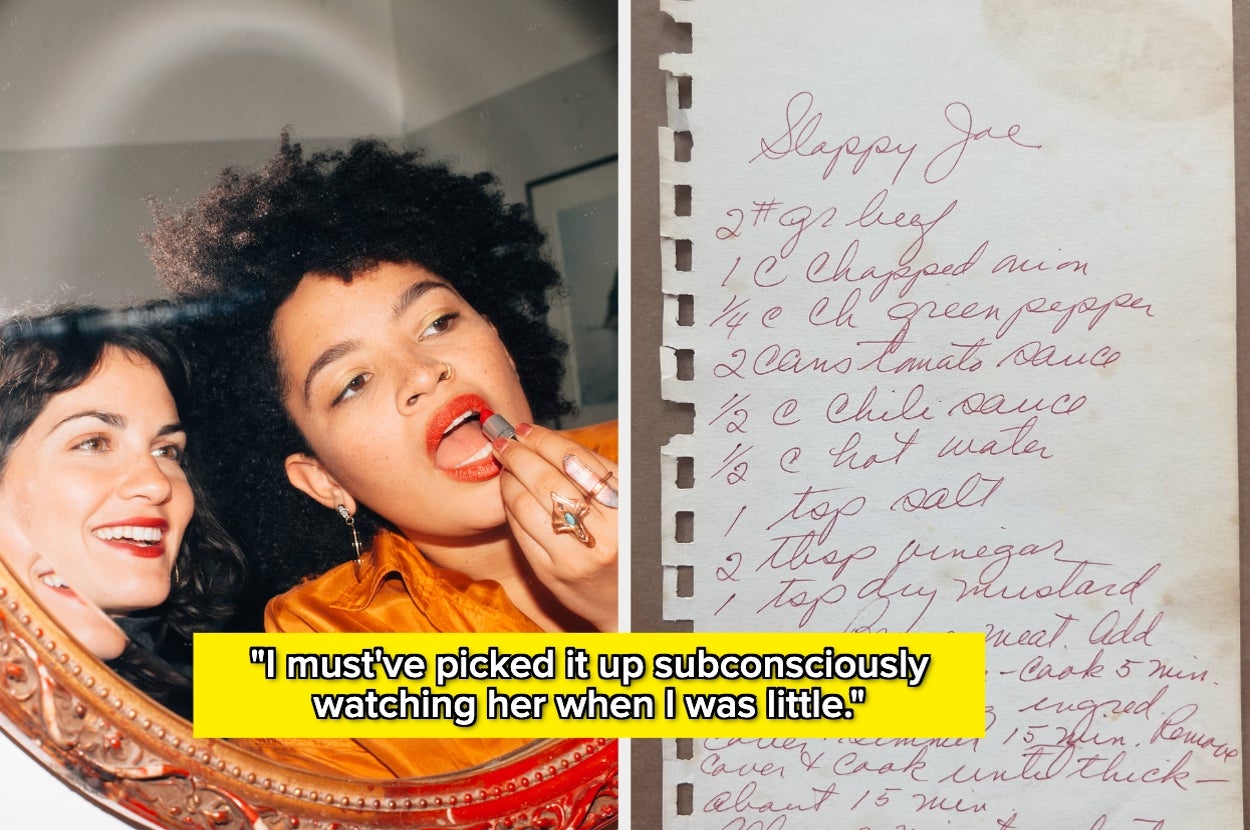 Slappy Joe
2# gr beef
1 C Chopped onion
1/4 c ch green pepper
2 cans tomato sauce
1/2 c chili sauce
1/2 c hot water
1 tsp salt
2 tbsp vinegar
1 tsp dry mustard
meat. Add
- Cook 5 min.
ingred.
Cover simmer 15 min. Remove
Cover & Cook until thick -
about 15 min.
"I must've picked it up subconsciously
watching her when I was little."